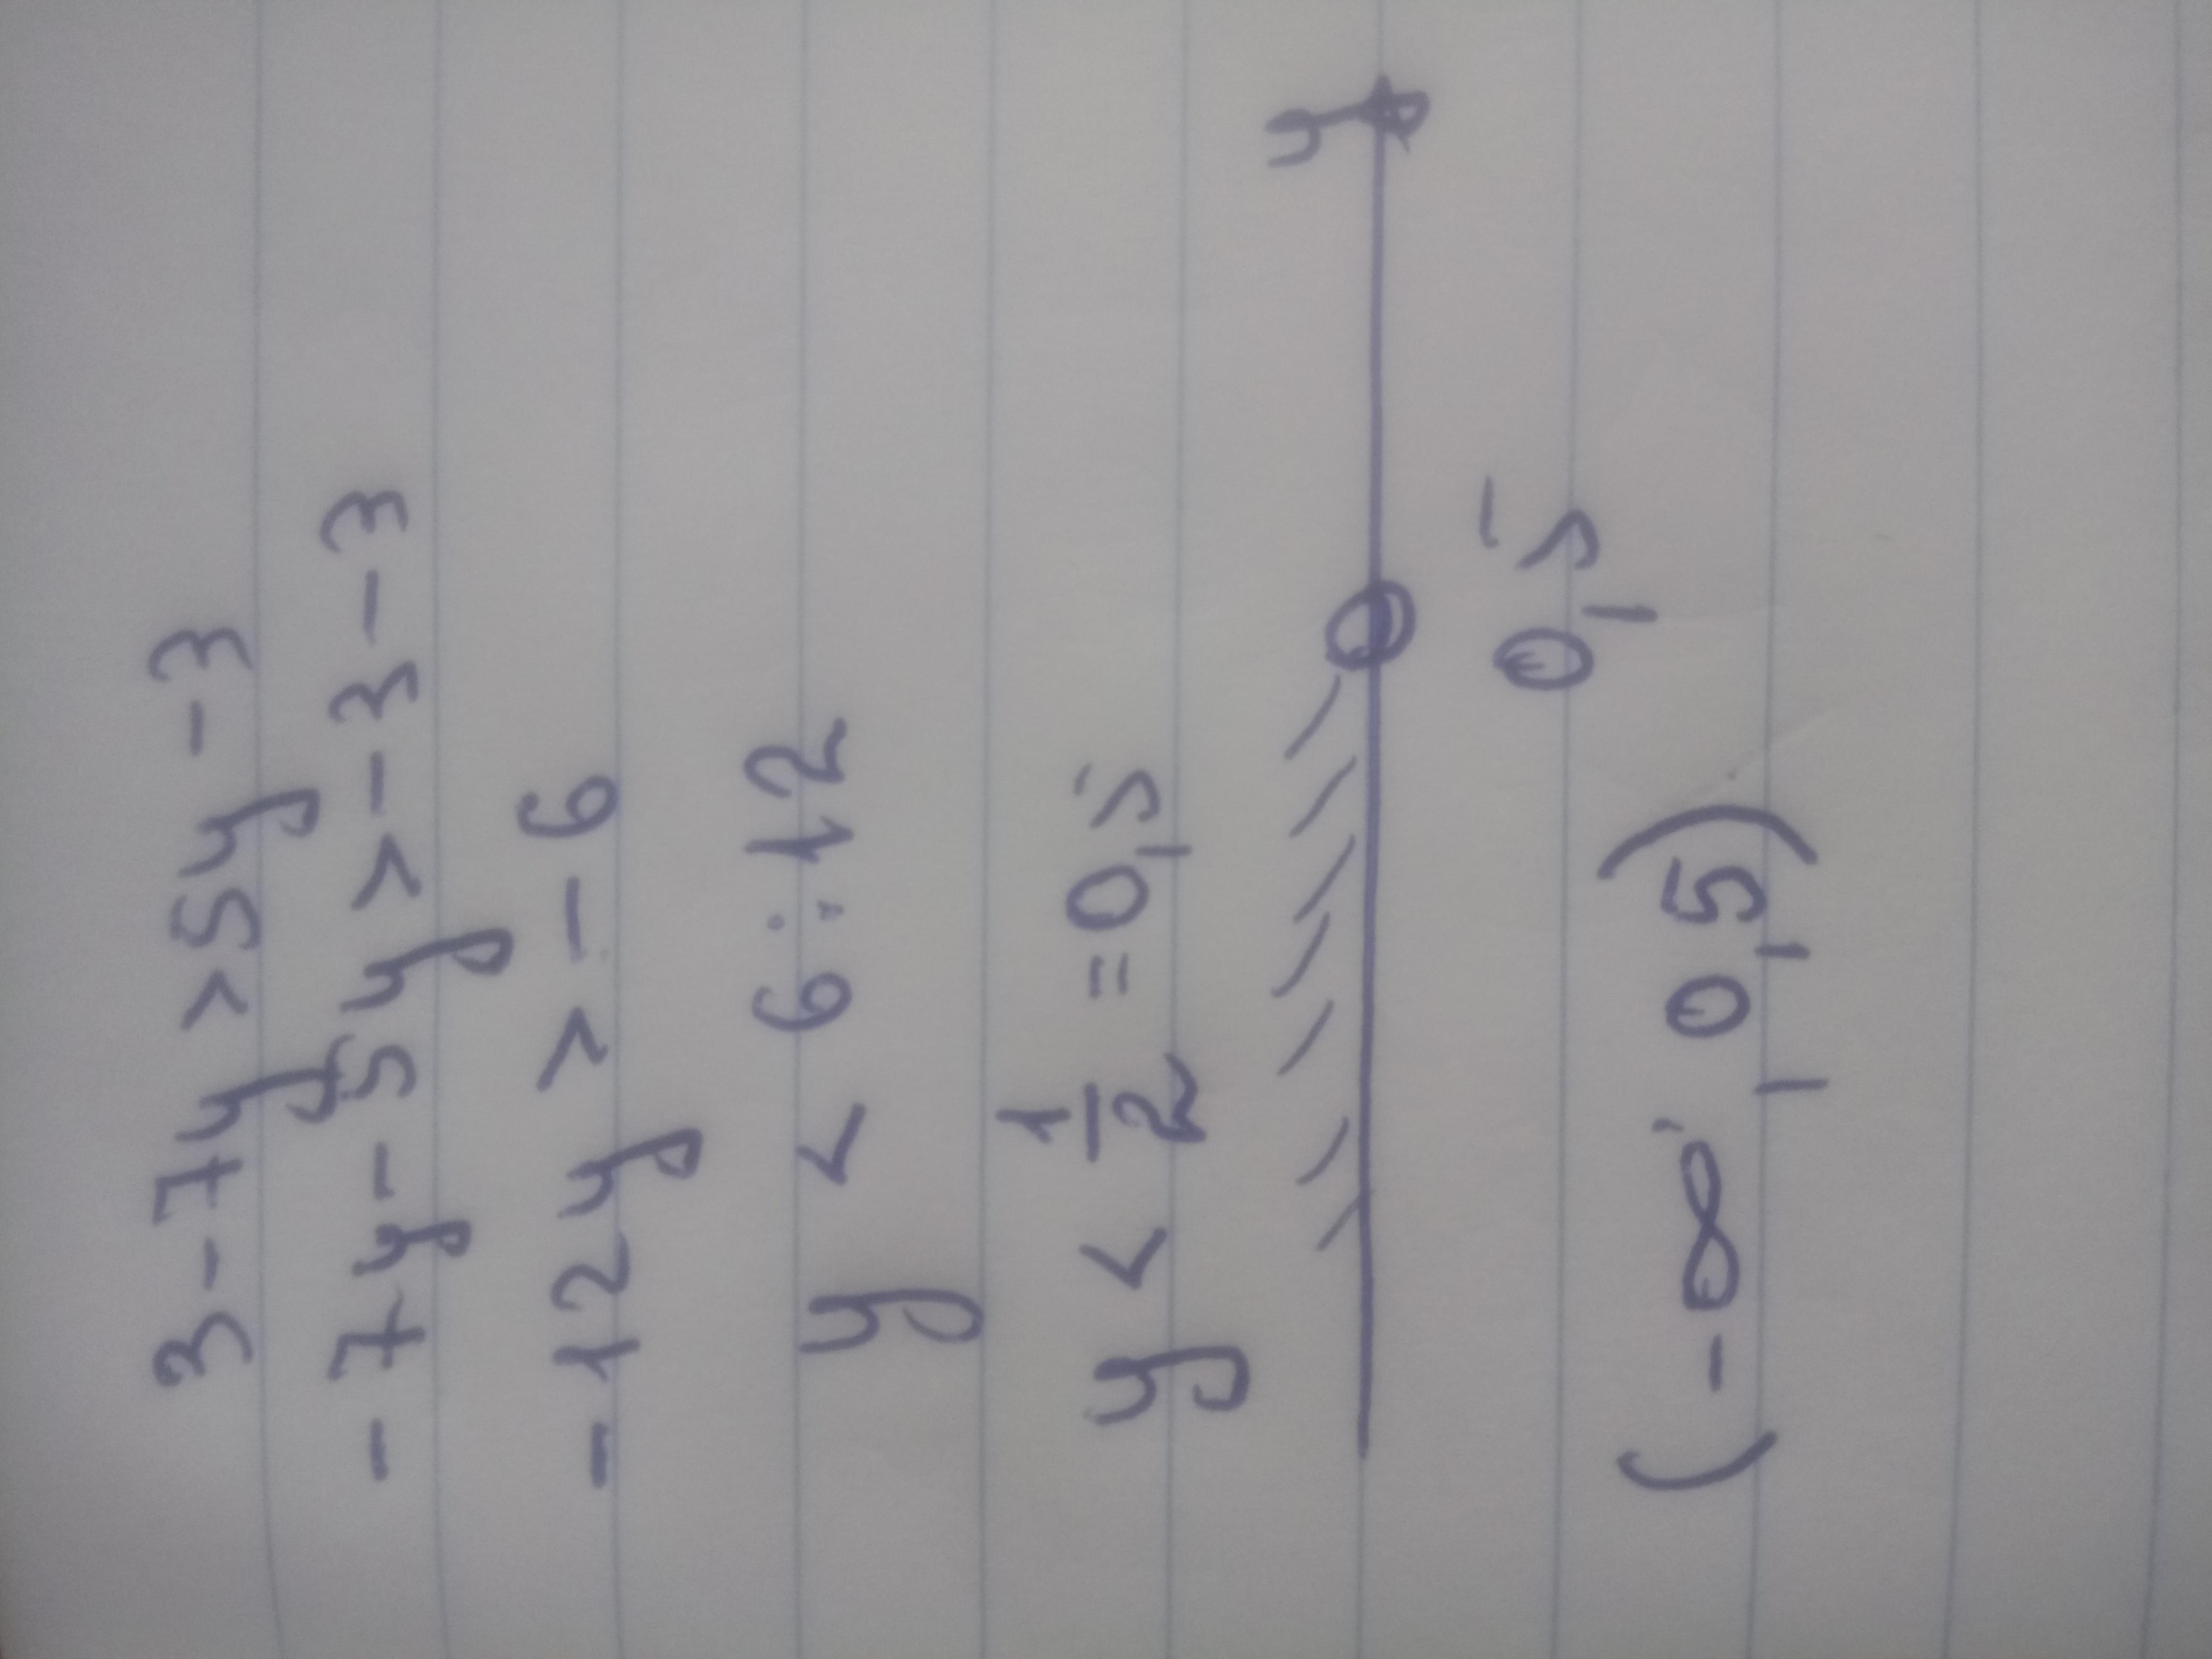 3-7y>5y-3
-7y-5y>-3-3
-12y>-6
y<6:12
y<1/2=0,5
y
0,5
(-∞,0,5)